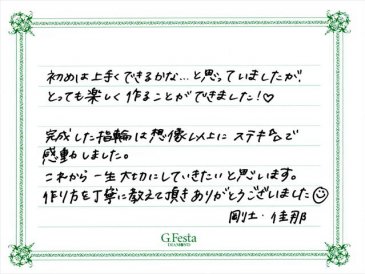 初めは上手くできるかな…と思っていましたが、
とっても楽しく作ることができました!♡
完成した指輪は想像以上にステキで
感動しました。
これから一生大切にしていきたいと思います。
作り方を丁寧に教えて頂きありがとうございました☺
剛士・佳那
G.Festa
DIAMOND